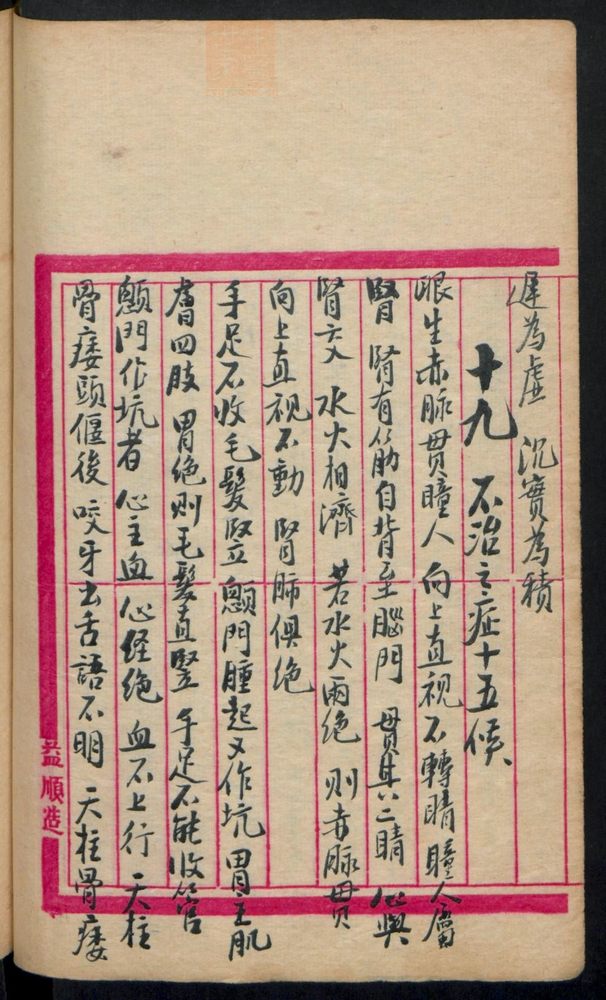 遲為虛 沉實為積
十九 不治之症十五候
眼生赤脉貫瞳人 向上直視不轉睛 瞳人屬
腎 腎有筋自背至腦門 貫其二睛 心與
腎交 水火相濟 若水火兩絶 則赤脉貫
向上直視不動 腎肺俱絶
手足不收毛髮竪 顖門腫起又作坑 胃主肌
膚四肢 胃绝则毛髮直竪 手足不能收管
顖門作坑者 心主血 心經绝 血不上行 天柱
骨痿頭偃後 咬牙出舌語不明 天柱骨痿
益順造